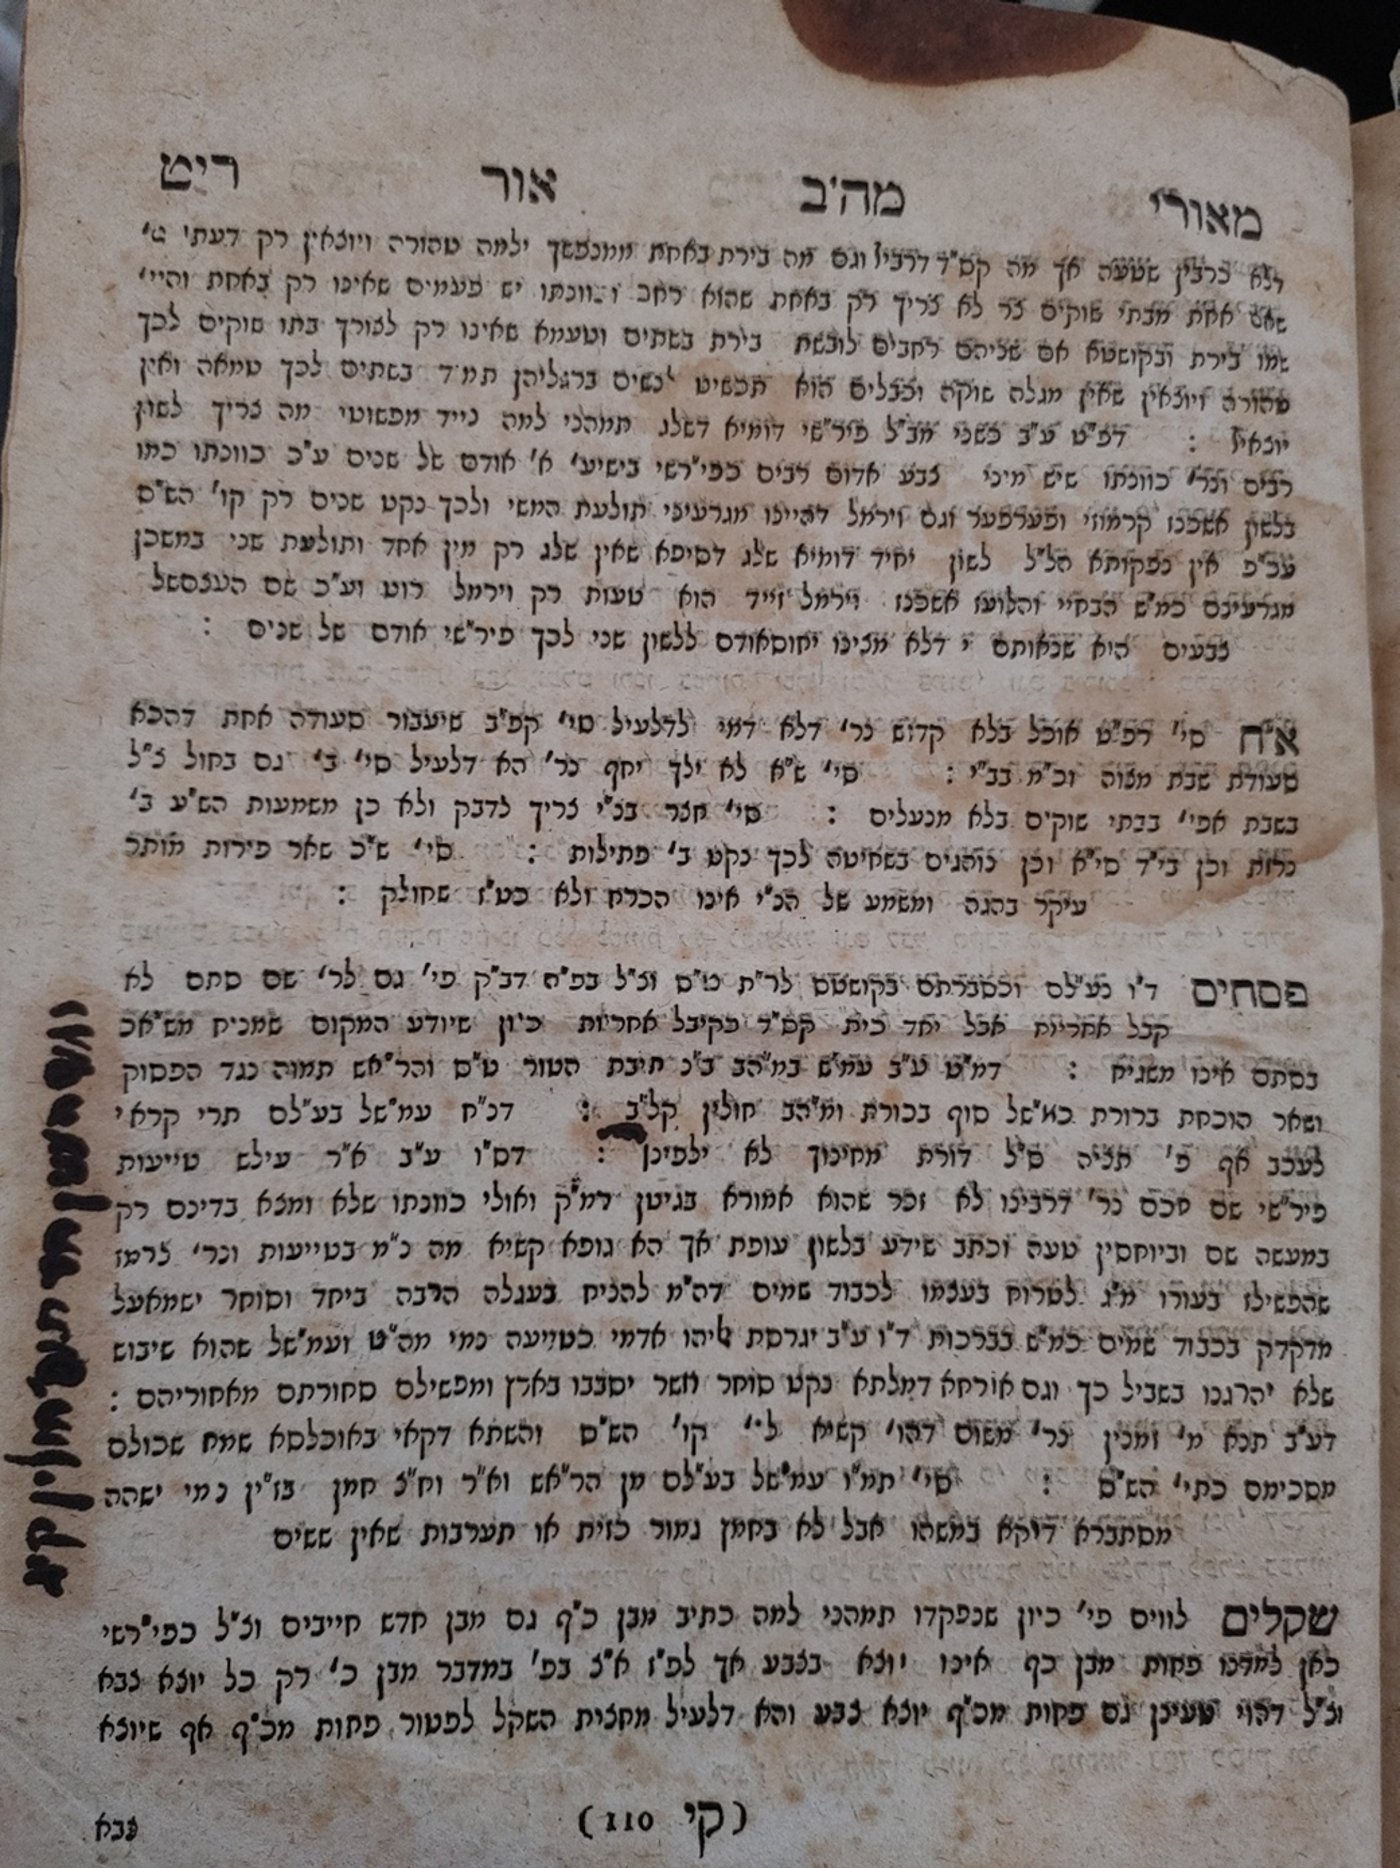 מאורי מה׳ב אור ריט
דלא כרבין שטעה אך מה קס״ד דרבין וגם מה בירת באחת ממנפשך ילמה טהורה ויוצאין רק דעתי
שאם אחת מבתי שוקים צר לא צריך רק באחת שהוא רחב וכוונתו יש פעמים שאינו רק באחת והיי׳
שמו בירת ובקושטא אם שניהם רחבים לובשת בירת בשתים וטעמא שאינו רק לצורך בתו שוקים לכך
טהורה ויוצאין שאין מגלה שוקה וכבלים הוא תכשיט לנשים ברגליהן תמיד בשתים לכך טמאה ואין
יוצאין : דפ״ט ע״ב כשני מב״ל פיר״שי דומיא דשלג תמהני למה נייד מפשוטי מה צריך לשון
רבים ונר׳ כוונתו שיש מיני צבע אדום רבים כפי״רשי בישעי׳ א׳ אודם של שנים ע״כ כוונתו כמו
בלשון אשכנז קרמוזי ופערפער וגם וירמל דהיינו מגרעיני תולעת המשי ולכך נקט שנים רק קו׳ הש״ס
עכ״פ אין נפקותא הל״ל לשון יחיד דומיא שלג דסיפא שאין שלג רק מין אחד ותולעת שני במשכן
מגרעינם כמ״ש הבחיי והלועז אשכנז וירמל זייד הוא טעות רק וירמל רוט וע״כ שם העצםשל
צבעים היא שנאותם י דלא מצינו יחוסאודם ללשון שני לכך פיר״שי אודם של שנים :
א״ח סי׳ רפ״ט אוכל בלא קדוש נר׳ דלא דמי לדלעיל סי׳ קפ״ב שיעבור סעודה אחת דהכא
סעודת שבת מצוה וכ״מ בב״י : סי׳ ש״א לא ילך יחף נר׳ הא דלעיל סי׳ ב׳ גם בחול צ״ל
בשבת אפי׳ בבתי שוקים בלא מנעלים : סי׳ חצר בב״י צריך לדבק ולא כן משמעות הש״ע ב׳
נרות וכן בי״ד סי״א וכן נוהגים בשחיטה לכך נקט ב׳ פתילות : סי׳ ש״כ שאר פירות מותר
עיקר בהגה ומשמע של הב״י אינו הכרח ולא כט״ז שחולק :
פסחים ד״ו בע״לס וכסברתם בקושטם לר״ת ט״ס וצ״ל בפ״ח דב״ק פי׳ גם לר׳ שם סתם לא
קבל אחריות אבל יחד בית קס״ד בקיבל אחריות כיון שיודע המקום שמניח מש״אכ
בסתם אינו משגיח : דמ״ט ע״ב עמ״ש במ״הב ב״כ תיבת הטור ט״ס והר״אש תמוה נגד הפסוק
ושאר הוכחת ברורת כמ״של סוף בכורת ומ״הב חולין קל״ב : דנ״ח עמ״של בע״לם תרי קראי
לעכב אף פ׳ תניה ס״ל דורת מחינוך לא ילפינן : דס״ו ע״ב א״ר עילש טייעות
פיר״שי שם חכם נר׳ דרבינו לא זכר שהוא אמורא בגיטן דמ״ק ואולי כוונתו שלא ומצא בדינם רק
במעשה שם וביוחסין טעה וכתב שידע בלשון עופת אך הא גופא קשיא מה נ״מ בטייעות ונר׳ לרמז
שהפשילו בעורו מ״ג לטרוח בעצמו לכבוד שמים דה״מ להניח בעגלה הרבה ביחד וסוחר ישמאעל
מדקדק בכבוד שמים כמ״ש בברכות ד״ו ע״ב יגרסת ליהו אדמי כטייעה נמי מה״ט ועמ״של שהוא שיבוש
שלא יהרגנו בשביל כך וגם אורחא דמלתא נקט סוחר אשר יסבבו בארץ ומפשילם סחורתם מאחוריהם :
דע״ב תנא מ׳ זמנין נר׳ משום דהו׳ קשיא לי׳ קו׳ הש״ס והשתא דקאי באוכלסא שמח שכולם
מסכימם כתי׳ הש״ס : סי׳ תמ״ו עמ״של בע״לם מן הר״אש וא״ר וח״צ חמן בז״ין נמי ישהה
מסתברא דוקא במשהו אבל לא בחמן גמור כזית או תערבות שאין ששים
שקלים לווים פי׳ כיון שנפקדו תמהני למה כתיב מבן כ״ף גם מבן חדש חייבים וצ״ל כפי״רשי
כאן למדנו פחות מבן כף אינו יוצא בצבע אך לפ״ז א״צ בפ׳ במדבר מבן כ׳ רק כל יוצא צבא
וצ״ל דהוי טעינן גם פחות מכ״ף יוצא צבע והא דלעיל מחצית השקל לפטור פחות מכ״ף אף שיוצא
(קי 110)
צבא